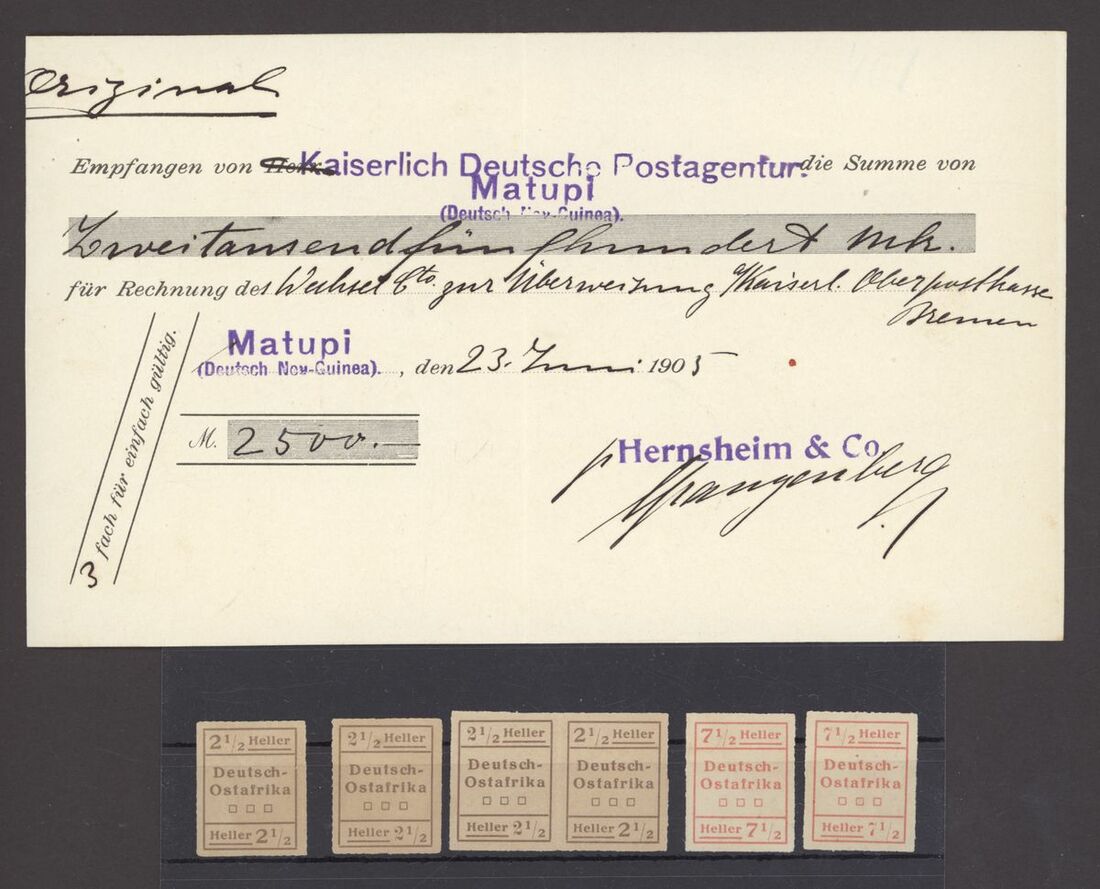 Original
Empfangen von Herrn Kaiserlich Deutsche Postagentur. die Summe von
Matupi
(Deutsch Neu-Guinea).
Zweitausendfünfhundert Mk.
für Rechnung des Wechsel Cto. zur Überweisung a/Kaiserl. Oberpostkasse
Bremen
Matupi
(Deutsch Neu-Guinea). , den 23. Juni 1905
3 fach für einfach gültig.
M. 2500.—
Hernsheim & Co.
p Spangenberg
2 1/2 Heller
Deutsch-
Ostafrika
Heller 2 1/2
2 1/2 Heller
Deutsch-
Ostafrika
Heller 2 1/2
2 1/2 Heller
Deutsch-
Ostafrika
Heller 2 1/2
2 1/2 Heller
Deutsch-
Ostafrika
Heller 2 1/2
7 1/2 Heller
Deutsch-
Ostafrika
Heller 7 1/2
7 1/2 Heller
Deutsch-
Ostafrika
Heller 7 1/2